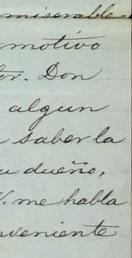 miserable
motivo
tor. Don
algun
saber la
u dueño,
V. me habla
nveniente